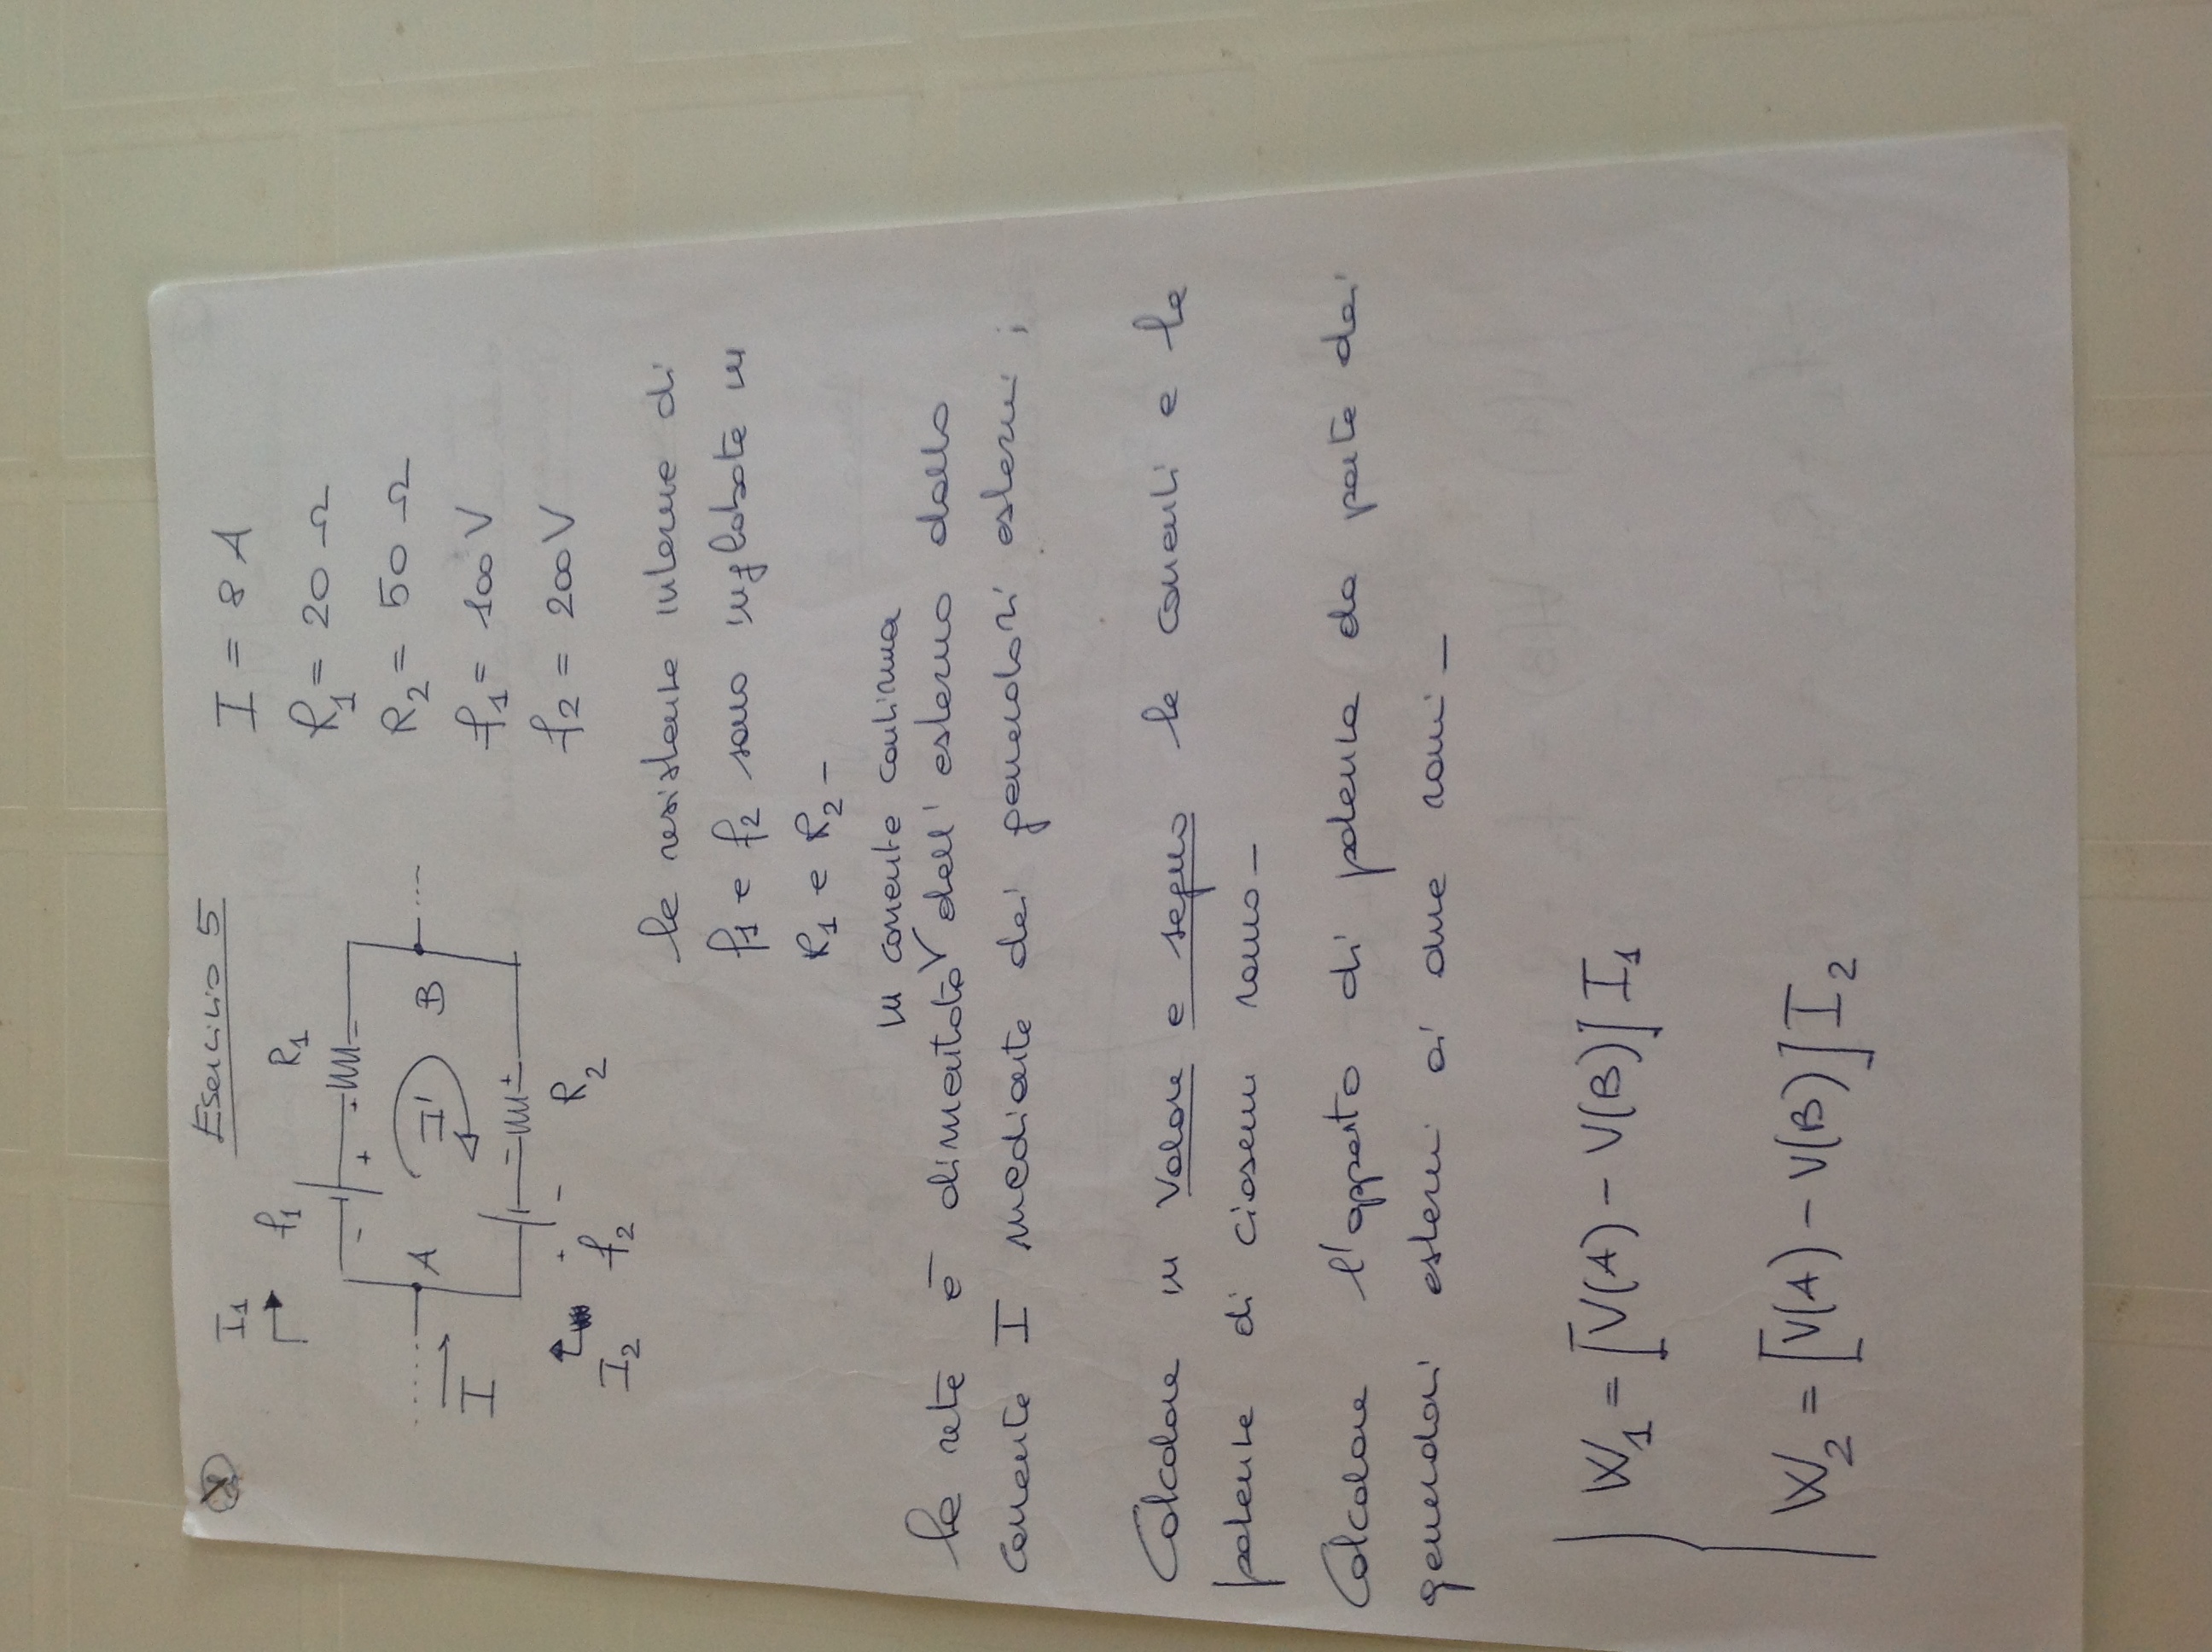 Esercizio 5
I1
f1
R1
- + + -
A I' B
I
- +
+ -
R2
I2 f2
I = 8 A
R1 = 20 Ω
R2 = 50 Ω
f1 = 100 V
f2 = 200 V
le resistenze interne di
f1 e f2 sono inglobate in
R1 e R2 -
in corrente continua
la rete è alimentata dall' esterno dalla
corrente I mediante dei generatori esterni ;
Calcolare in valore e segno le correnti e le
potenze di ciascun ramo -
Calcolare l'apporto di potenza da parte dei
generatori esterni ai due rami -
W1 = [V(A) - V(B)] I1
W2 = [V(A) - V(B)] I2